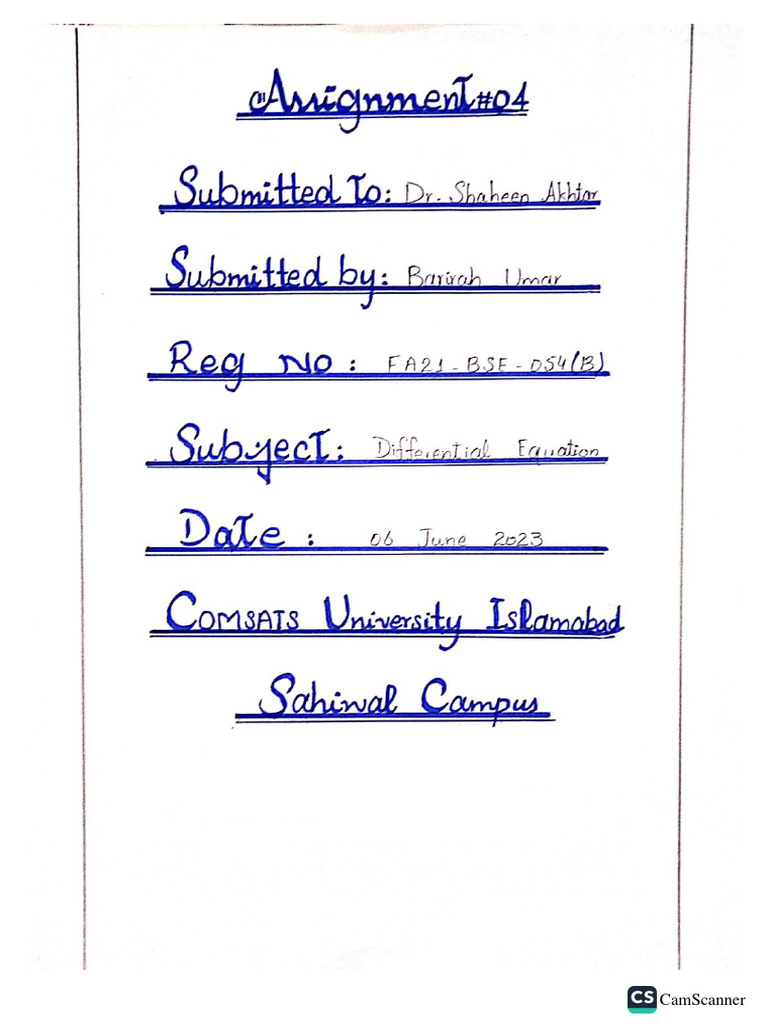 Assignment#04
Submitted To: Dr. Shaheen Akhtar
Submitted by: Barirah Umar
Reg No : FA21-BSE-054(B)
Subject: Differential Equation
Date : 06 June 2023
COMSATS University Islamabad
Sahiwal Campus
CS CamScanner